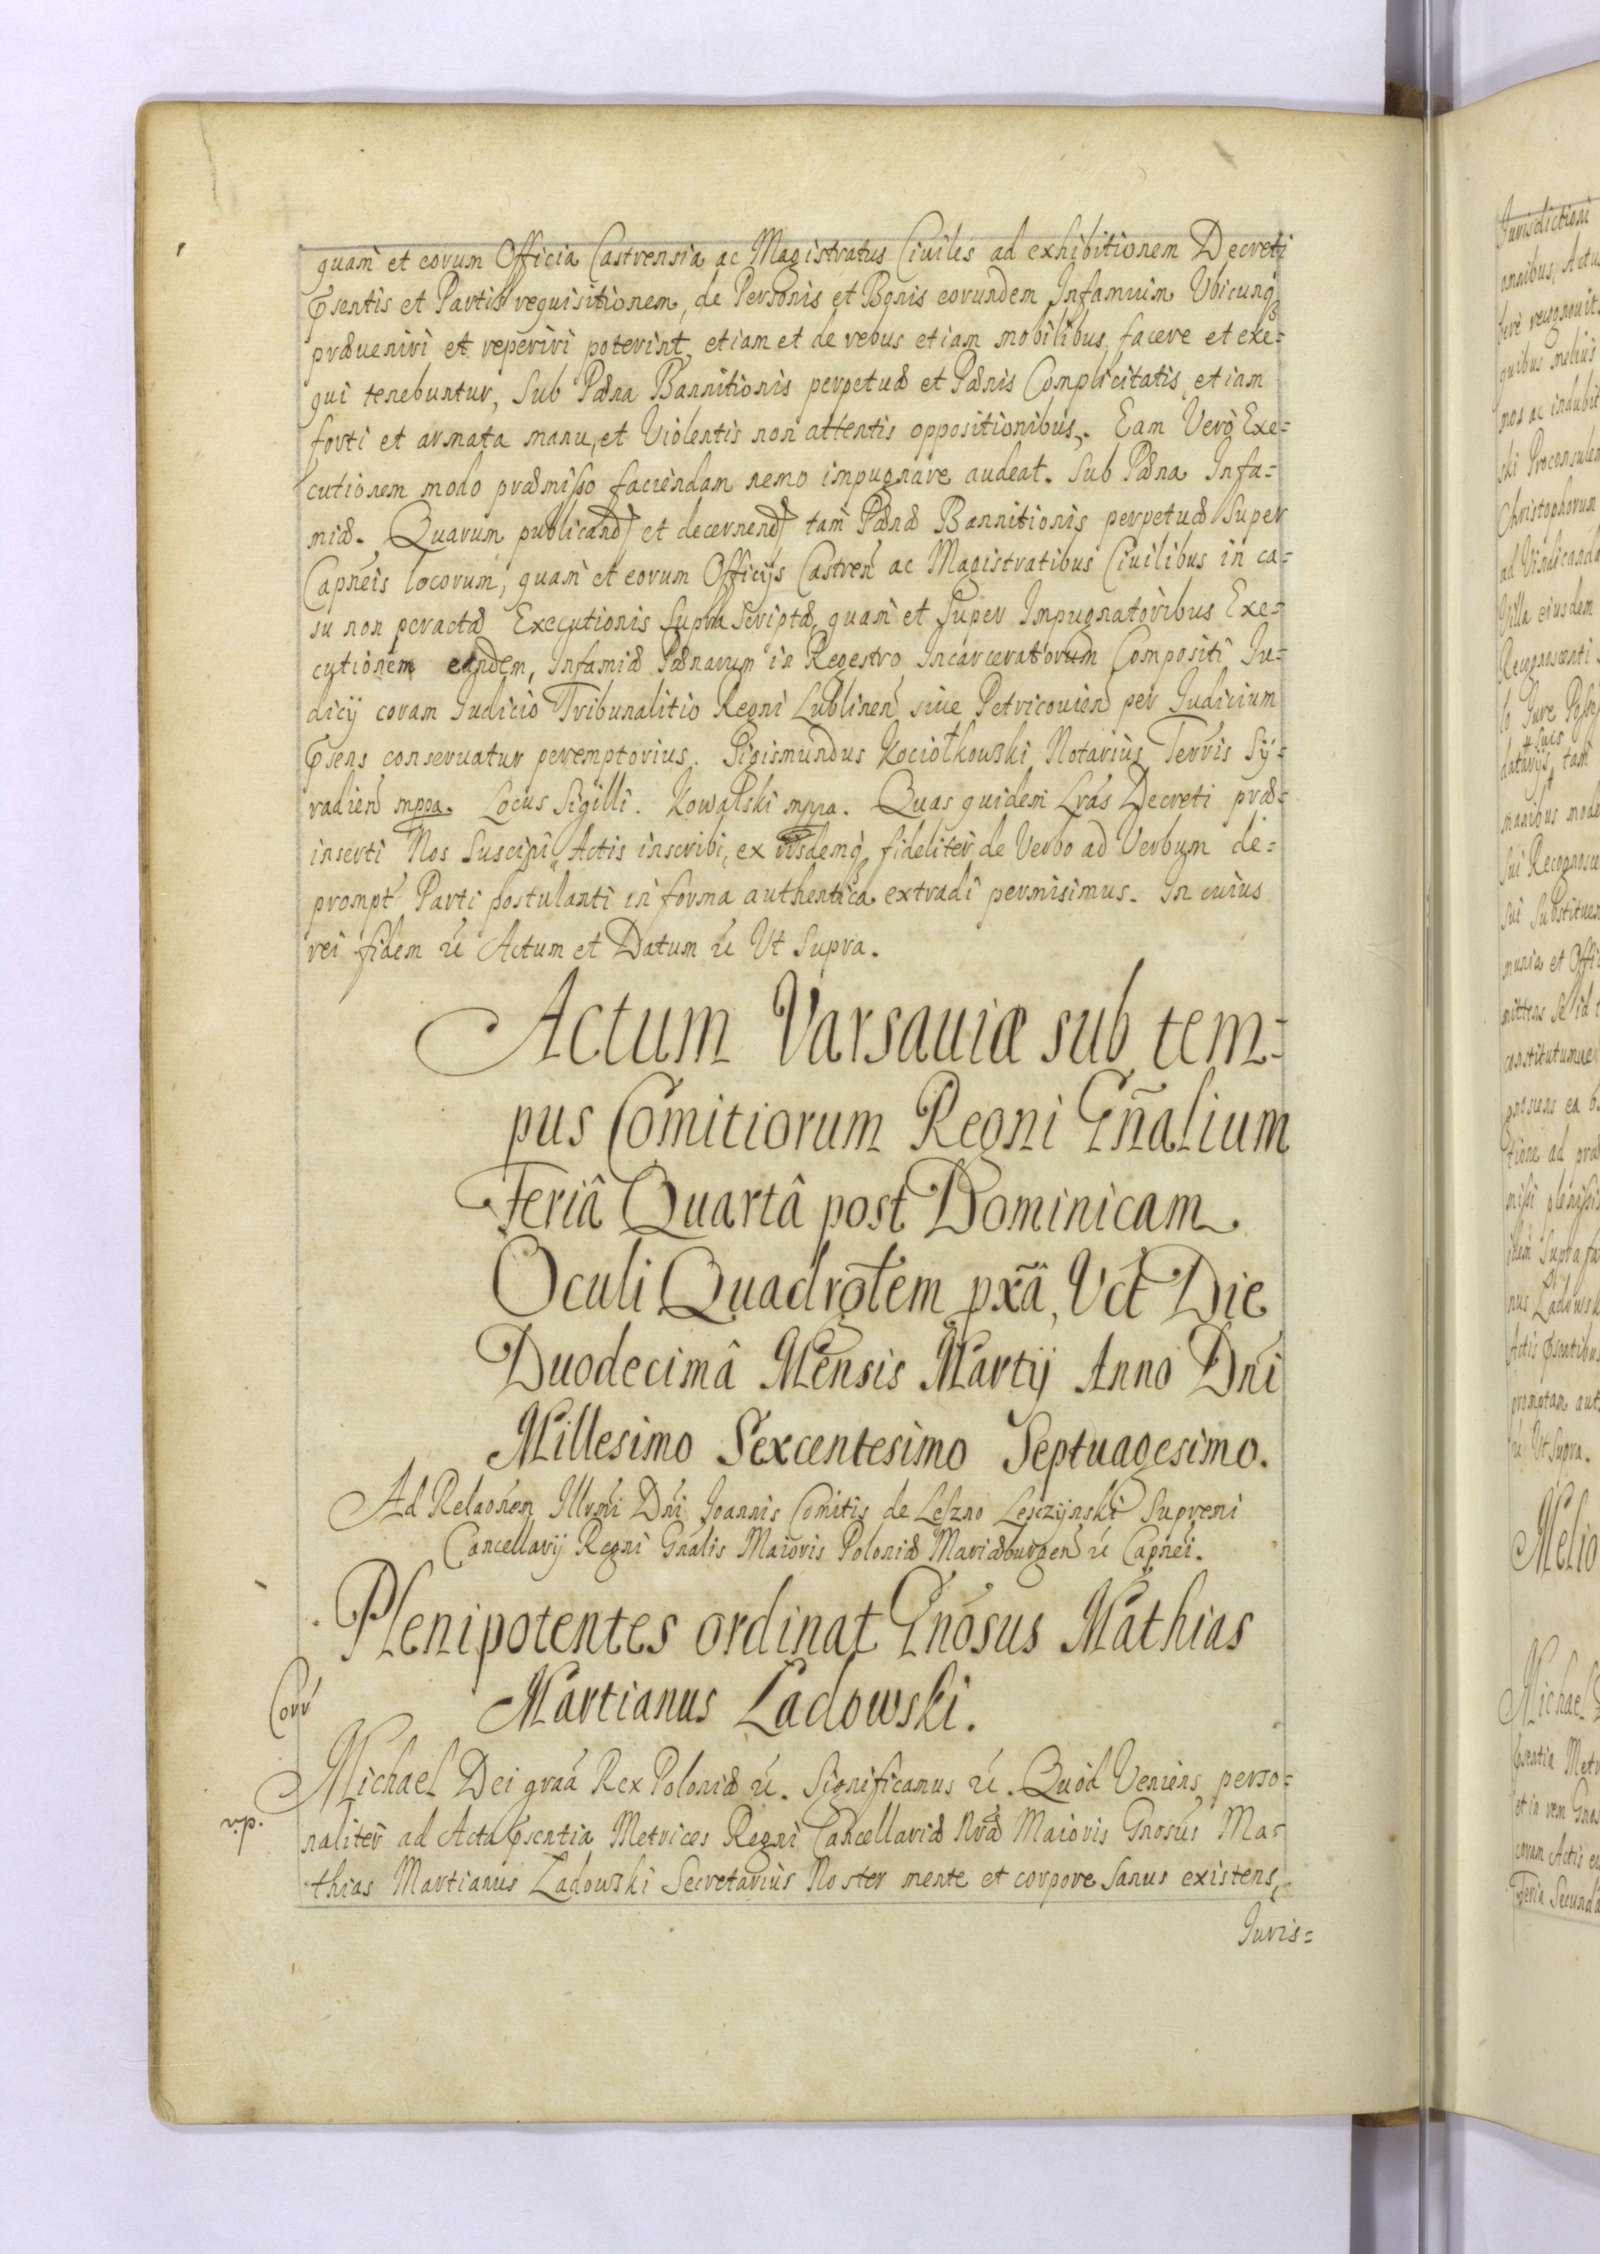 quam et eorum Officia Castrensia ac Magistratus Ciuiles ad exhibitionem Decreti
Pꝛsentis et Partis requisitionem, de Personis et Bonis eorundem Infamium Vbicunqꝫ
præueniri et reperiri poterint, etiam et de rebus etiam mobilibus facere et exe=
qui tenebuntur, Sub Pæna Bannitionis perpetuæ et Pænis Complicitatis, etiam
forti et armata manu, et Violentis non attentis oppositionibus. Eam Verò Exe=
cutionem modo præmisso faciendam nemo impugnare audeat. Sub Pæna Infa=
miæ. Quarum publicandæ et decernendæ tam Pænæ Bannitionis perpetuæ Super
Capneis locorum, quam et eorum Officijs Castren ac Magistratibus Ciuilibus in ca=
su non peractæ Executionis Supra Scriptæ, quam et Super Impugnatoribus Exe=
cutionem eandem, Infamiæ Pænarum in Regestro Incarceratorum Compositi Ju=
dicij coram Judicio Tribunalitio Regni Lublinen siue Petricouien per Judicium
Pꝛsens conseruatur peremptorius. Sigismundus Kociołkowski Notarius Terris Sy=
radien mppa. Locus Sigilli. Kowalski mppa. Quas quidem Lrás Decreti præ=
inserti Nos Suscipi Actis inscribi, ex iisdemqꝫ fideliter de Verbo ad Verbum de=
prompt Parti postulanti in forma authentica extradi permisimus. In cuius
rei fidem &c Actum et Datum &c Vt Supra.
Actum Varsauiæ sub tem=
pus Comitiorum Regni Gñalium
Feriâ Quartâ post Dominicam
Oculi Quadrolem pxâ, Vct Die
Duodecimâ Mensis Martij Anno Dni
Millesimo Sexcentesimo Septuagesimo.
Ad Relaonem Illrmi Dni Joannis Comitis de Leszno Lesczynski Supremi
Cancellarij Regni Gnalis Maioris Poloniæ Mariæburgen &c Capnei.
Plenipotentes ordinat Gnosus Mathias
Martianus Ladowski.
Corr
Michael Dei graa Rex Poloniæ &c. Significamus &c. Quod Veniens perso=
v.p.
naliter ad Acta Pꝛsentia Metrices Regni Cancellariæ Nræ Maioris Gnosus Ma=
thias Martianus Ladowski Secretarius Noster mente et corpore sanus existens,
Juris=
Jurisdictioni
omnibus, Actu
bere recognouit
quibus melius
mos ac indubit
ski Proconsulem
Christophorum
ad Vindicanda
Villa eiusdem
Recognoscenti
lo Jure
suis
datarijs, tam
manibus mode
Sui Recognosce
Sui Substituen
munia et Offic
mittens se id
constitutumue
gnoscens ea
tione ad præ
nisi plenissi
idem Supra
nus Ladowsk
Actis Pꝛsentibus
promptam aut
&c Vt Supra.
Melio
Michael
Pꝛsentia Metr
et in rem Gnos
coram Actis
Feria Secunda